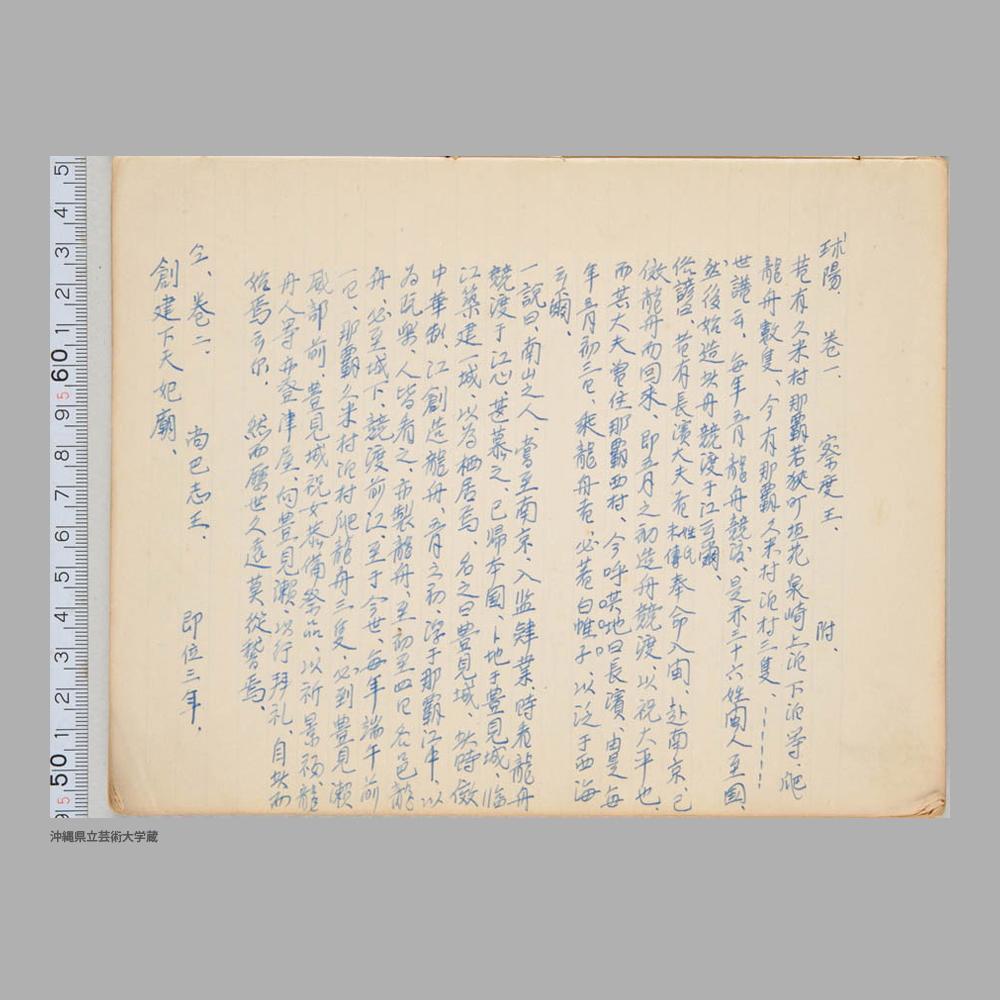 球陽、 卷一、 察度王、 附、
昔有久米村那霸若狹町垣花泉崎上泊下泊等、爬
龍舟數隻、今有那霸久米村泊村三隻、
世譜云、每年五月龍舟競渡、是亦三十六姓閩人至国、
然後始造此舟競渡于江云爾、
俗諺曰、昔有長濱大夫者 姓氏未傳 奉命入閩、赴南京、已
倣龍舟而回来、即五月之初造舟競渡、以祝太平也、
而其大夫曾住那霸西村、今呼其地曰長濱、由是每
年五月初三日、乘龍舟者、必著白帷子、以泛于西海
云爾、
一說曰、南山之人、嘗至南京、入監肄業、時看龍舟
競渡于江心、甚慕之、已歸本国、卜地于豊見城、臨
江築建一城、以為栖居焉、名之曰豊見城、此時倣
中華制、江創造龍舟、五月之初、浮于那霸江中、以
為玩樂、人皆看之、亦製龍舟、至初至四日各邑龍
舟、必至城下、競渡前江、至于今世、每年端午前
一日、那霸久米村泊村爬龍舟三隻、必到豊見瀬
威部前、豊見城祝女恭備祭品、以祈景福、龍
舟人等亦登津屋、向豊見瀬、以行拜礼、自此而
始焉云尔、然而歷世久遠莫從𥡴焉、
仝、卷二、 尚巴志王、 即位三年、
創建下天妃廟、
5 4 3 2 1 60 9 8 7 6 5 4 3 2 1 50
沖縄県立芸術大学蔵